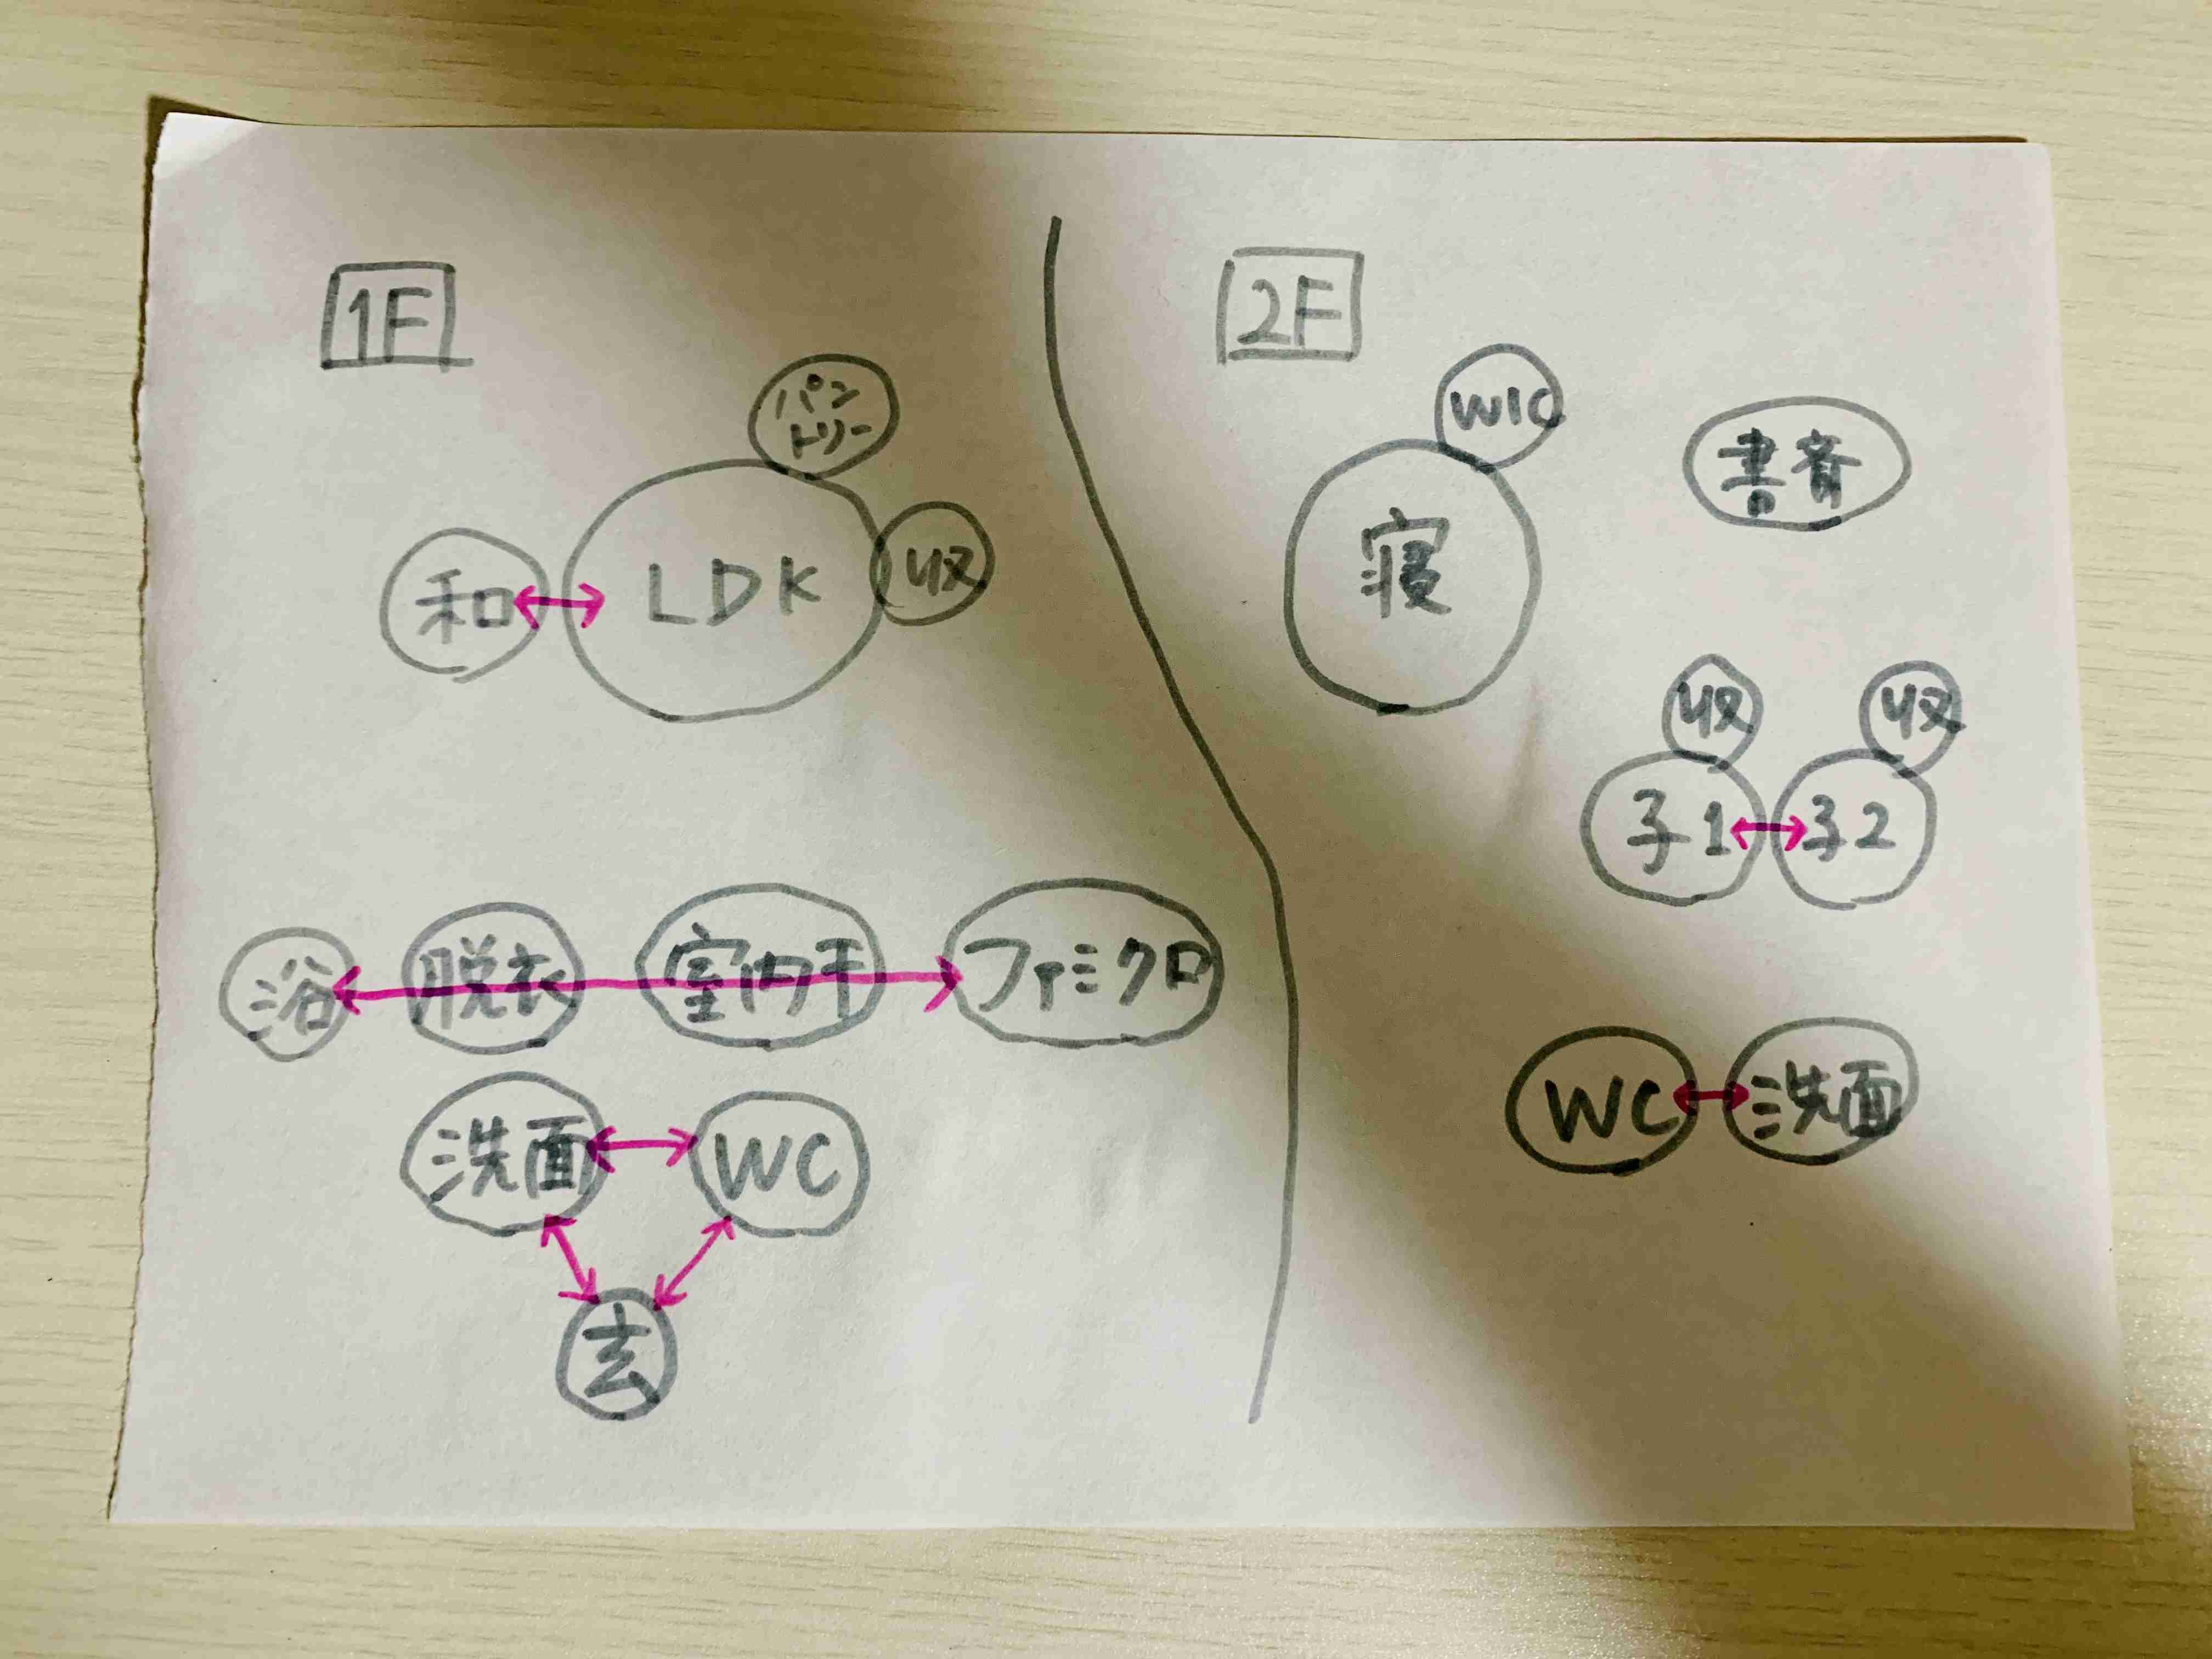 1F
パン
トリー
和
LDK
収
浴
脱衣
室内干
ファミクロ
洗面
WC
玄
2F
WIC
書斎
寝
収
収
子1
子2
WC
洗面